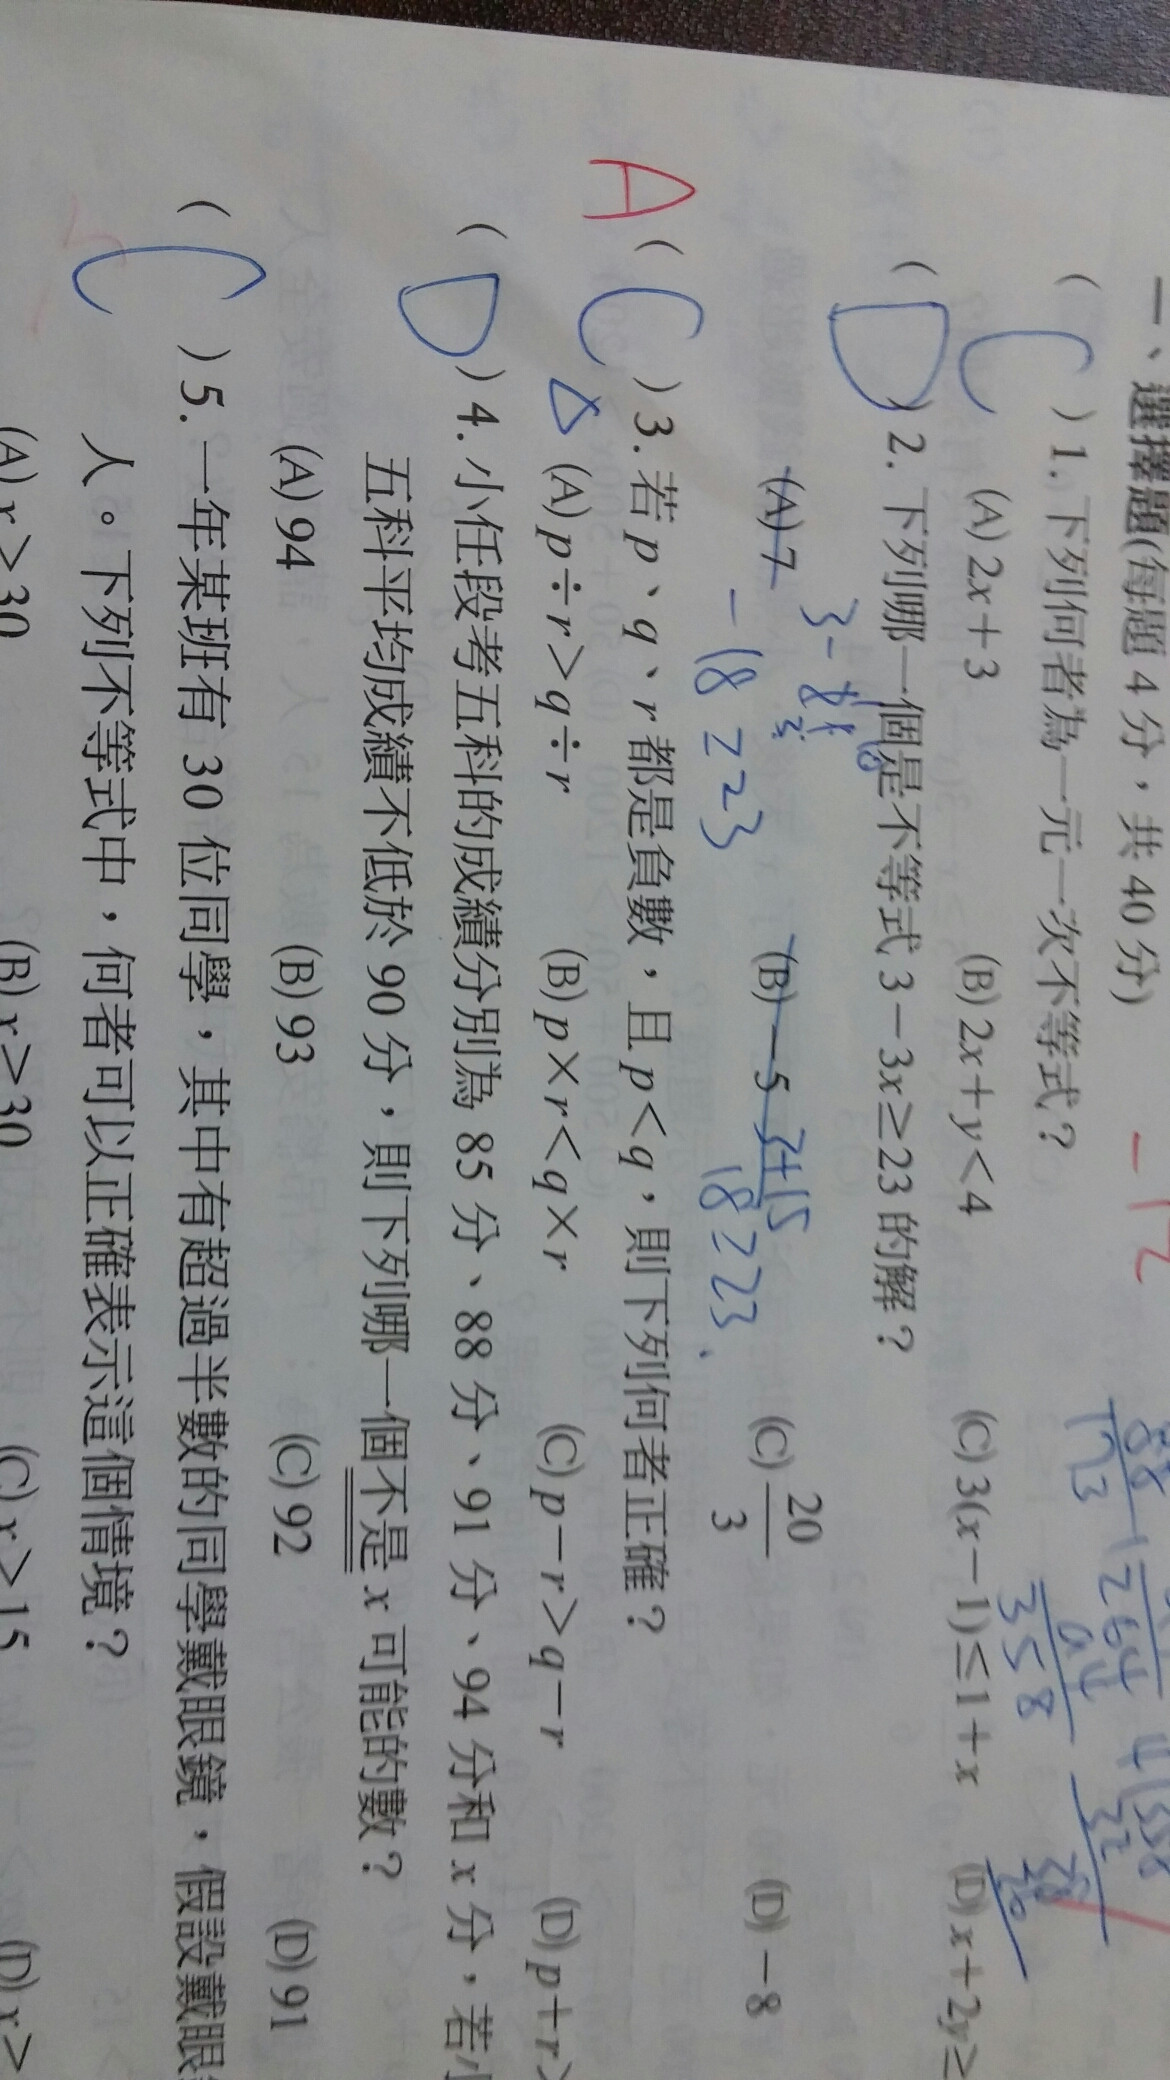 一、選擇題(每題 4 分，共 40 分) -12
( C ) 1. 下列何者為一元一次不等式？
(A) 2x+3 (B) 2x+y<4 (C) 3(x-1)≤1+x (D) x+2y≥
( D ) 2. 下列哪一個是不等式 3-3x≥23 的解？
(A) 7 (B) -5 (C) 20/3 (D) -8
3+15
-18≥23 18≥23
A ( C ) 3. 若 p、q、r 都是負數，且 p<q，則下列何者正確？
(A) p÷r>q÷r (B) p×r<q×r (C) p-r>q-r (D) p+r>
( D ) 4. 小任段考五科的成績分別為 85 分、88 分、91 分、94 分和 x 分，若小
五科平均成績不低於 90 分，則下列哪一個不是 x 可能的數？
(A) 94 (B) 93 (C) 92 (D) 91
( C ) 5. 一年某班有 30 位同學，其中有超過半數的同學戴眼鏡，假設戴眼
人。下列不等式中，何者可以正確表示這個情境？
(A) x>30 (B) x≥30 (C) x>15 (D) x≥